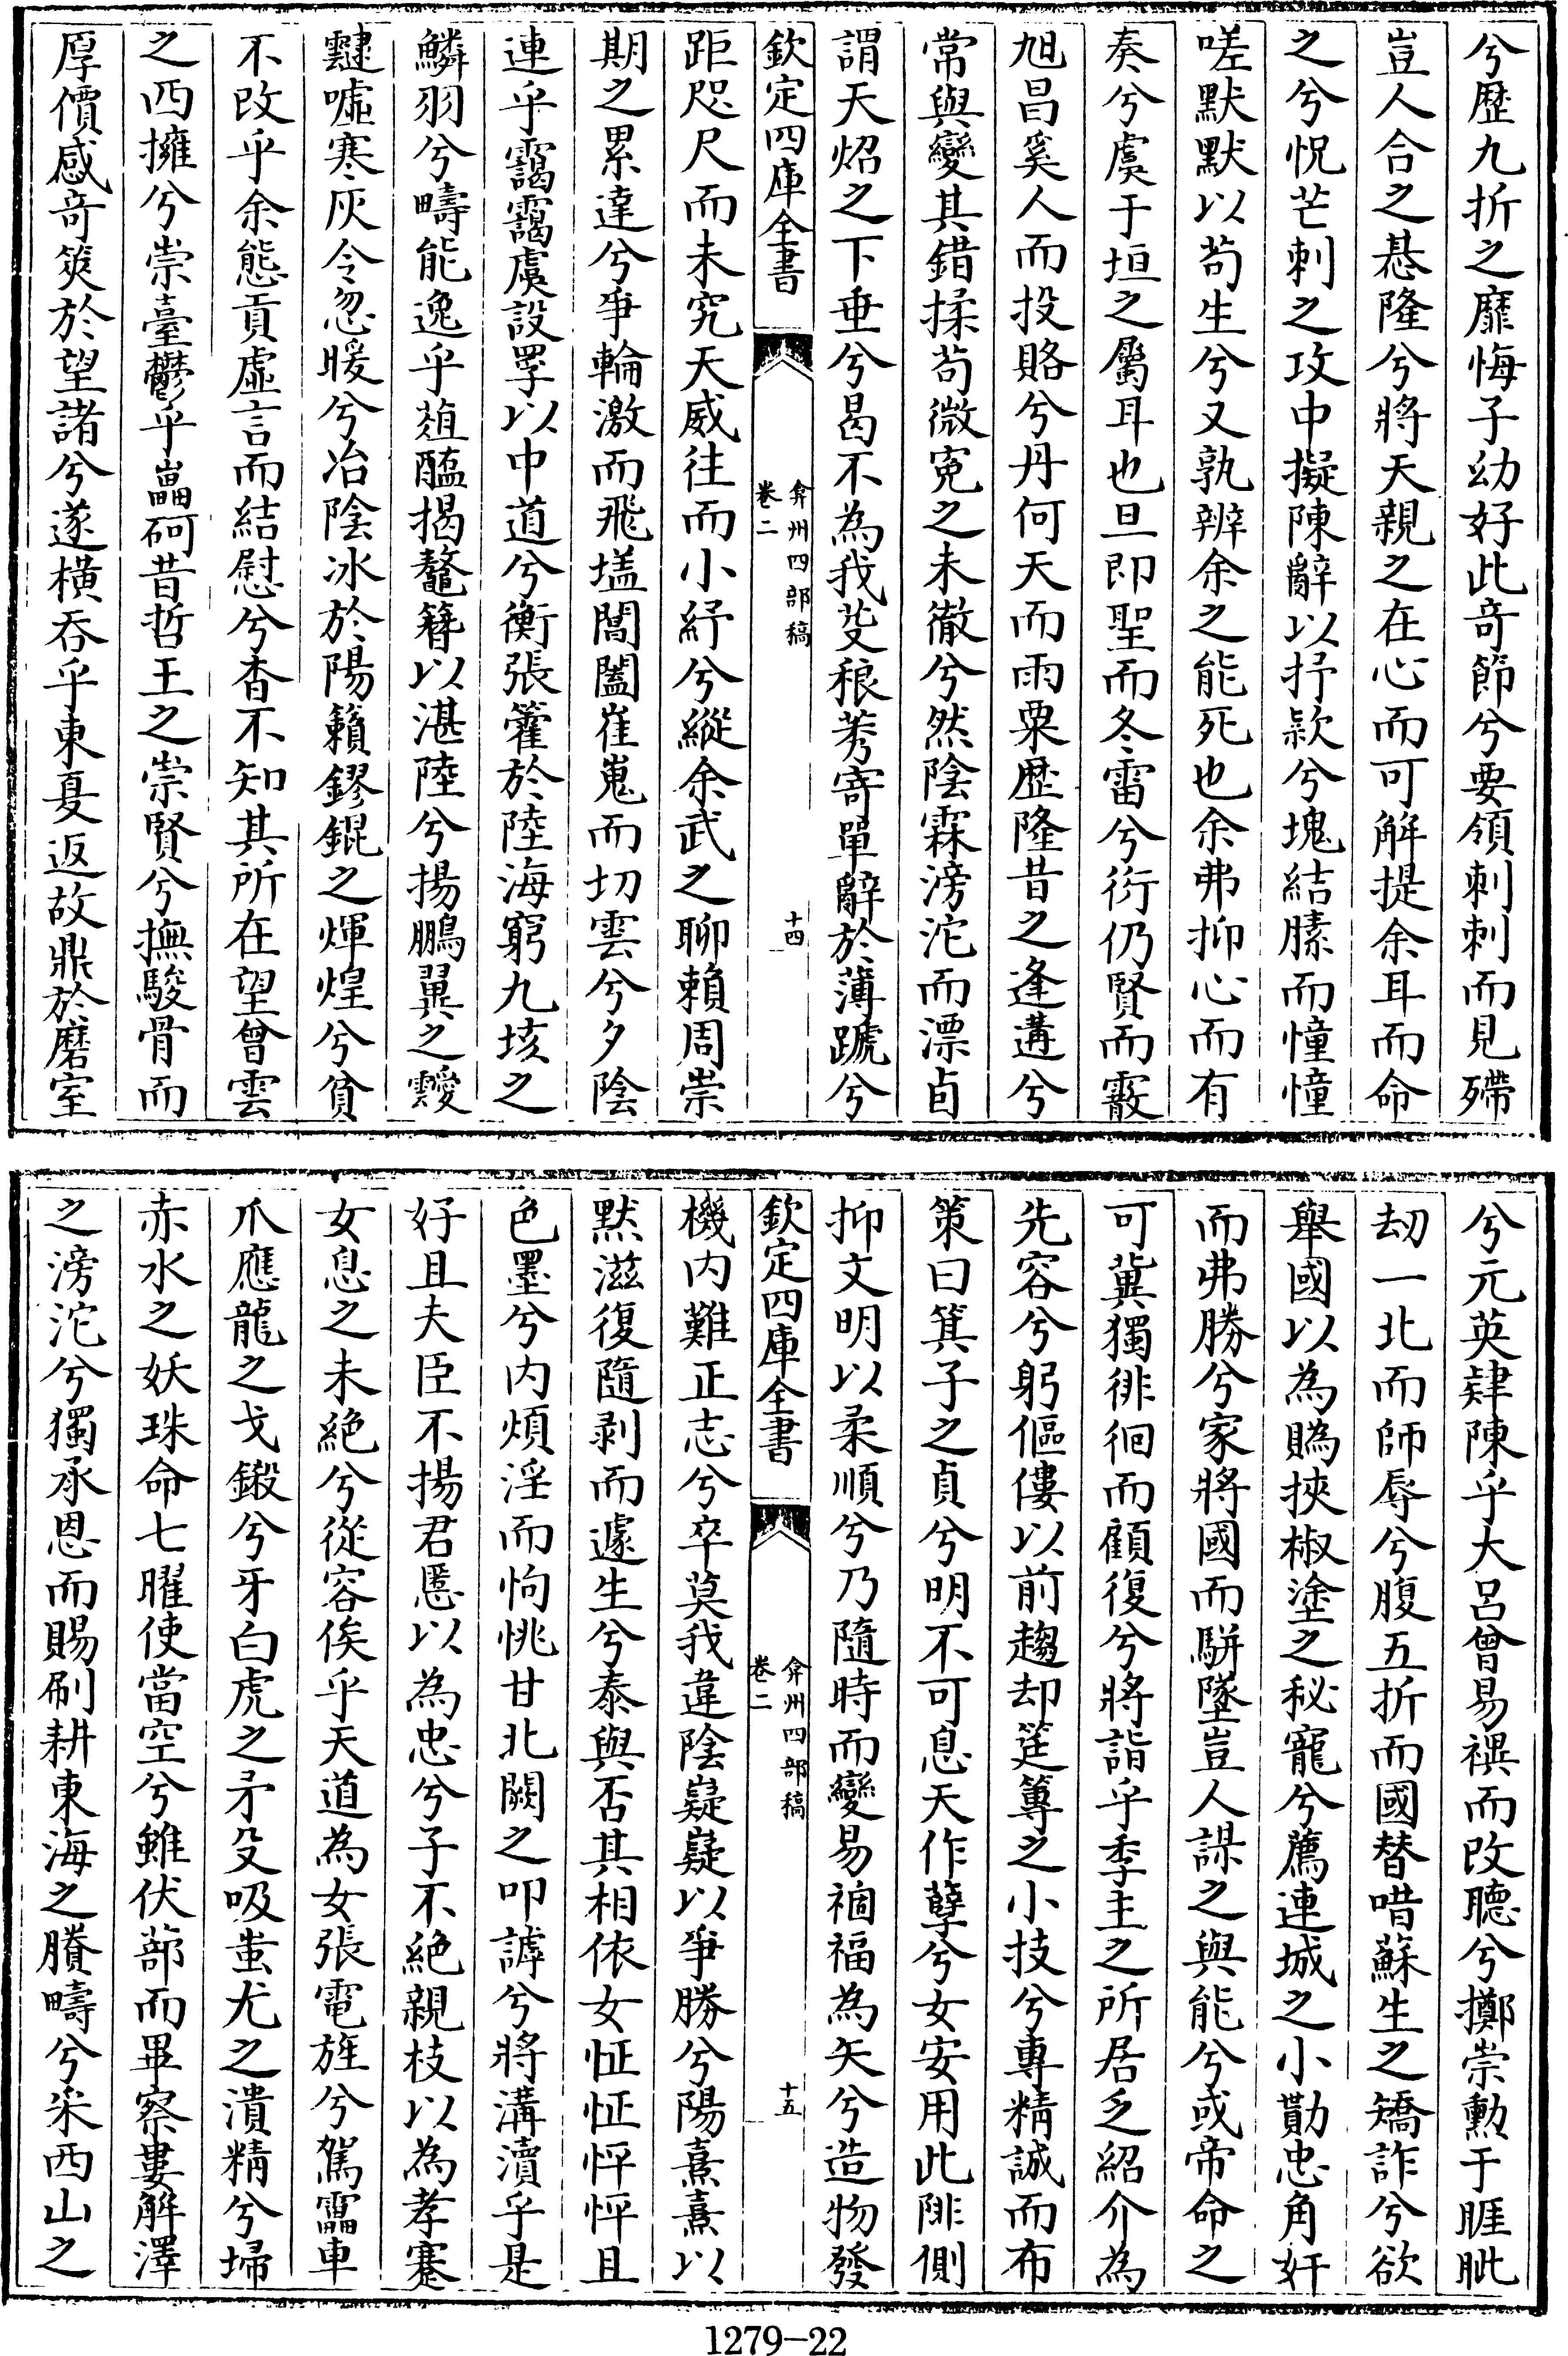 兮歴九折之靡悔子幼好此竒節兮要領刺刺而見殢
豈人合之惎隆兮將天親之在心而可解提余耳而命
之兮怳芒刺之攻中擬陳辭以抒款兮塊結膆而憧憧
嗟默默以茍生兮又孰辨余之能死也余弗抑心而有
奏兮虞于垣之屬耳也旦即聖而冬雷兮衍仍賢而霰
旭昌奚人而投賂兮丹何天而雨粟歴隆昔之逢遘兮
常與變其錯揉茍微寃之未徹兮然陰霖滂沱而漂卣
謂天炤之下垂兮曷不為我芟稂莠寄單辭於薄蹏兮
欽定四庫全書
弇州四部稿
卷二
十四
距咫尺而未究天威往而小紓兮縱余武之聊賴周崇
期之累達兮爭輪激而飛壒閶闔崔嵬而切雲兮夕陰
連乎靄靄虞設罦以中道兮衡張籗於陸海窮九垓之
鱗羽兮疇能逸乎葅醢揭鼇簪以湛陸兮揚鵬翼之靉
靆噓寒灰令忽暖兮冶陰冰於陽籟鏐錕之煇煌兮貧
不改乎余態貢虛言而結慰兮杳不知其所在望曾雲
之四擁兮崇臺鬱乎礧砢昔哲王之崇賢兮撫駿骨而
厚價感竒筴於望諸兮遂横吞乎東夏返故鼎於磨室
兮元英肆陳乎大呂曾易禩而改聽兮擲崇勳于睚眦
刼一北而師辱兮腹五折而國替唶蘇生之矯詐兮欲
舉國以為賵挾椒塗之秘寵兮薦連城之小勩忠角奸
而弗勝兮家將國而駢墜豈人謀之與能兮或帝命之
可冀獨徘徊而顧復兮將詣乎季主之所居乏紹介為
先容兮躬傴僂以前趨却筳篿之小技兮專精誠而布
策曰箕子之貞兮明不可息天作孽兮女安用此陫側
抑文明以柔順兮乃隨時而變易禍福為矢兮造物發
欽定四庫全書
弇州四部稿
卷二
十五
機内難正志兮卒莫我違陰嶷嶷以爭勝兮陽熹熹以
黙滋復隨剥而遽生兮泰與否其相依女怔怔怦怦且
色墨兮内煩淫而恂恌甘北闕之叩謼兮將溝瀆乎是
好且夫臣不揚君慝以為忠兮子不絶親枝以為孝蹇
女息之未絶兮從容俟乎天道為女張電旌兮駕靁車
爪應龍之戈鍛兮牙白虎之矛殳吸蚩尤之潰精兮埽
赤水之妖珠命七曜使當空兮雖伏蔀而畢察婁解澤
之滂沱兮獨承恩而賜刷耕東海之賸疇兮采西山之
1279-22